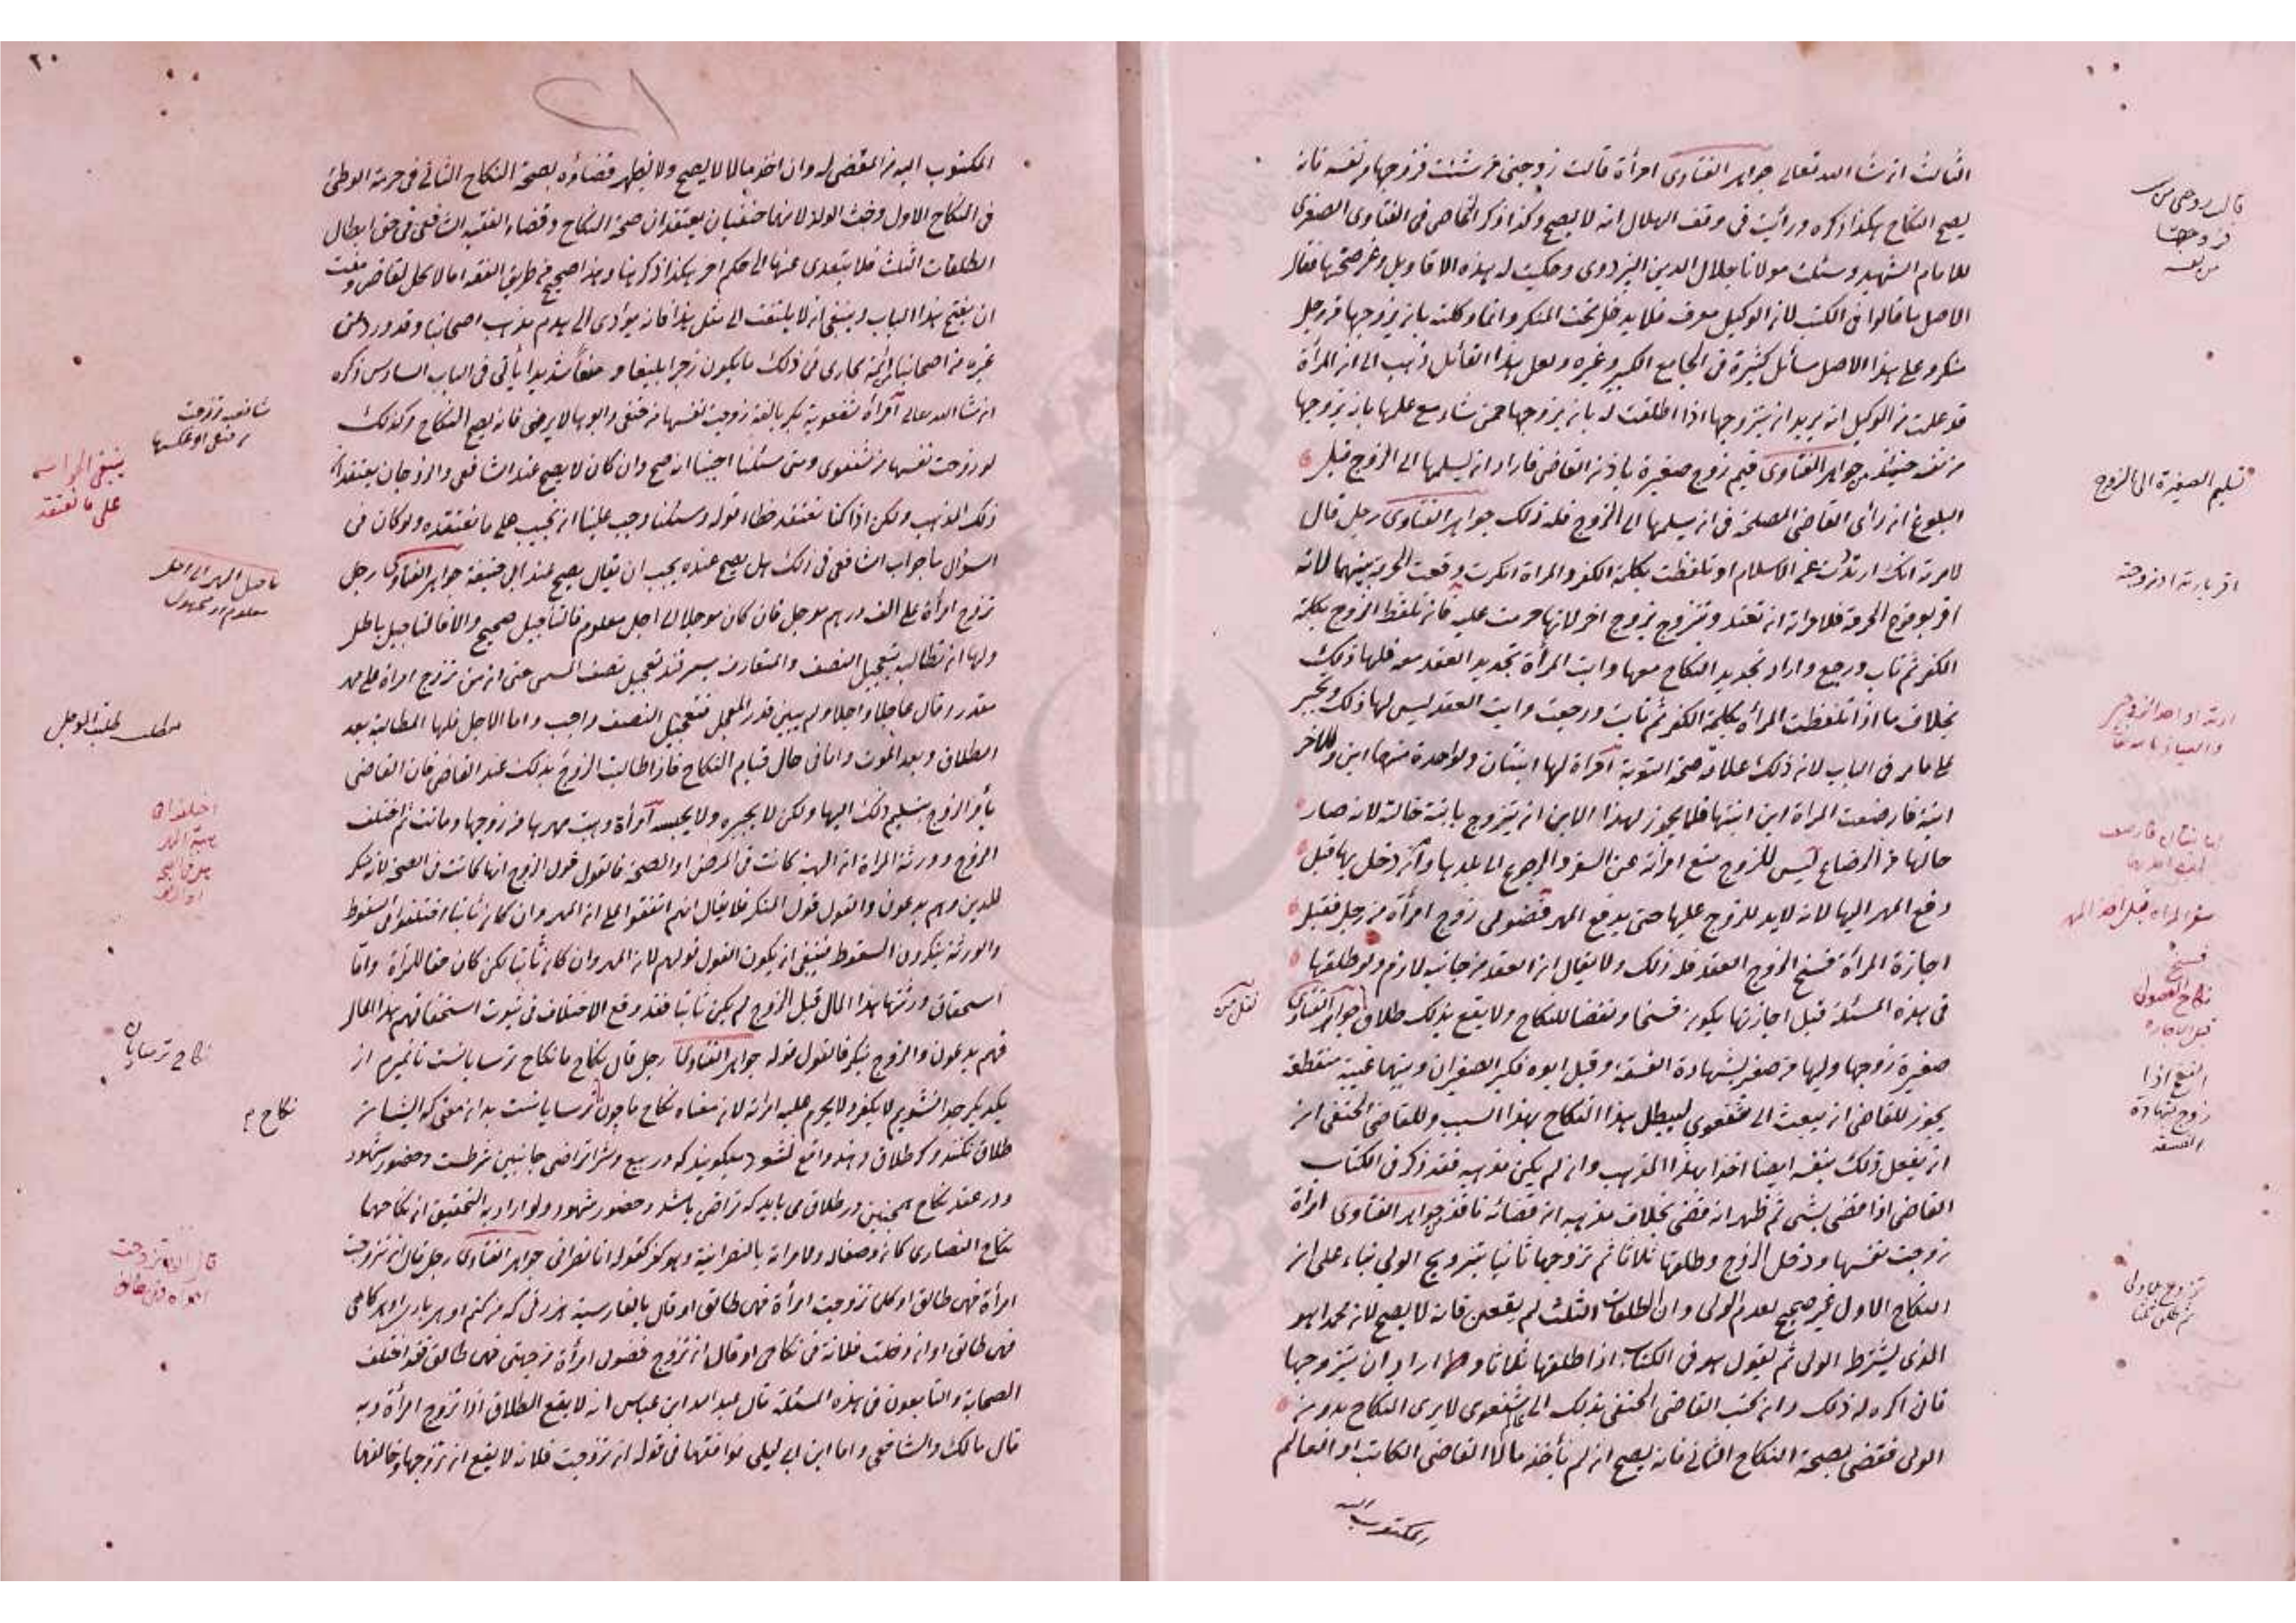 الثالث ان شا الله تعالى جواهر الفتاوى امرأة قالت زوجنى من شئت فزوجها من نفسه فانه
يصح النكاح هكذا ذكره ورأيت فى وقف الهلال انه لا يصح وكذا ذكر الخاصى فى الفتاوى الصغرى
للامام الشهيد وسئلت مولانا جلال الدين البزدوى وحكيت له هذه الاقاويل وغرضتها فقال
الاصل ما قالوا فى الكتب لان الوكيل معرف فلا يدخل تحت المنكر وانما وكلته بان يزوجها من رجل
منكر وعلى هذا الاصل مسائل كثيرة فى الجامع الكبير وغيره ولعل هذا القائل ذهب الى ان المرأة
قد علمت من الوكيل انه يريد ان يتزوجها اذا اطلقت له بان يزوجها ممن شاء مع علمها بانه يتزوجها
من نفسه جواهر الفتاوى قيم زوج صغيرة باذن القاضى فاراد ان يسلمها الى الزوج قبل
البلوغ ان رأى القاضى المصلحة فى ان يسلمها الى الزوج فله ذلك جواهر الفتاوى رجل قال
لامرته انك ارتددت عن الاسلام او تلفظت بكلمة الكفر والمراة انكرت وقعت الحرمة بينهما لانه
اقر بوقوع الحرمة فلامراته ان تعتد وتتزوج بزوج اخر لانها حرمت عليه فان تلفظ الزوج بكلمة
الكفر ثم تاب ورجع واراد تجديد النكاح معها وابت المرأة تجديد العقد معه فلها ذلك
بخلاف ما اذا تلفظت المرأة بكلمة الكفر ثم تابت ورجعت وابت العقد ليس لها ذلك وتجبر
على ما مر فى الباب لان ذلك علامة صحة التوبة امرأة لها ابنتان ولواحدة منهما ابن وللاخر
ابنة فارضعت المراة ابن ابنتها فلا يجوز لهذا الابن ان يتزوج بابنة خالته لانه صار
خالها من الرضاع ليس للزوج منع امرأته عن السفر والرجوع الى بلدها وان دخل بها قبل
دفع المهر اليها لانه لا يد للزوج عليها حتى يدفع المهر فضولى زوج امرأة من رجل فقبل
اجازة المرأة فسخ الزوج العقد فله ذلك ولا يقال ان العقد من جانبه لازم ولو طلقها
فى هذه المسئلة قبل اجازتها يكون فسخا ونقضا للنكاح ولا يقع بذلك طلاق جواهر الفتاوى
صغيرة زوجها وليها من صغير بشهادة الفسقة وقبل ابوه فكبر الصغيران وبينهما غيبة منقطعة
يجوز للقاضى ان يبعث الى شفعوى ليبطل هذا النكاح بهذا السبب وللقاضى الحنفى ان
ان يفعل ذلك بنفسه ايضا اخذا بهذا المذهب وان لم يكن مذهبه فقد ذكر فى الكتاب
القاضى اذا قضى بشى ثم ظهر انه قضى بخلاف مذهبه ان قضائه نافذ جواهر الفتاوى امرأة
زوجت نفسها ودخل الزوج وطلقها ثلاثا ثم تزوجها ثانيا بتزويج الولى بناء على ان
النكاح الاول غير صحيح لعدم الولى وان الطلقات الثلث لم يقعن فانه لا يصح لان محمدا هو
الذى يشترط الولى ثم يقول هو فى الكتاب اذا طلقها ثلاثا واراد ان يتزوجها
فان اكره له ذلك وان كتب القاضى الحنفى بذلك الى شفعوى لا يرى النكاح بدون
الولى فقضى بصحة النكاح الثانى فانه يصح ان لم يأخذ مالا القاضى الكاتب او العالم
المكتوب اليه
تسليم الصغيرة الى الزوج
سفر المراة قبل اخذ المهر
فسخ
نكاح الفضولى
قبل الاجازة
زوج بشهادة
الفسقة
تزوج بلا ولى
٢٠
المكتوب اليه من المقضى له وان اخذ مالا لا يصح ولا يظهر قضاؤه بصحة النكاح الثانى فى حرمة الوطئ
فى النكاح الاول وخبث الولد لانهما حنفيان يعتقدان صحة النكاح وقضاء الفقيه الشافعى فى حق ابطال
الطلقات الثلث فلا يتعدى عنها الى حكم اخر هكذا ذكر هنا وهذا صحيح فى طريق الفقه اما لا كل لقاض ومفت
ان يفتح هذا الباب وينبغى ان لا يلتفت الى مثل هذا فانه يؤدى الى هدم مذهب اصحابنا وقد ورد من
غيره من اصحابنا ائمة بخارى فى ذلك ما يكون زجرا بليغا و منعا شديدا يأتى فى الباب السادس ذكره
ان شا الله تعالى امرأة شفعوية بكر بالغة زوجت نفسها من حنفى وابوها لا يرضى فانه يصح النكاح وكذلك
لو زوجت نفسها من شفعوى ومتى سئلنا اجبنا انه صح وان كان لا يصح عند الشافعى والزوجان يعتقدان
ذلك المذهب ولكن اذا كنا نعتقد خطاء قوله وسئلنا وجب علينا ان نجيب على ما نعتقده ولو كان فى
السؤال ما جواب الشافعى فى ذلك هل يصح عنده يجب ان يقال يصح عند ابى حنيفة جواهر الفتاوى رجل
تزوج امرأة على الف درهم مؤجل فان كان مؤجلا الى اجل معلوم فالتأجيل صحيح والا فالتاجيل باطل
ولها ان تطالبه بتعجيل النصف والمتعارف بسمرقند تعجيل نصف المسمى حتى ان من تزوج امراة على مهر
مقدر وقال عاجلا واجلا ولم يبين قدر المعجل فتعجيل النصف واجب واما الاجل فلها المطالبة بعد
الطلاق وبعد الموت واما فى حال قيام النكاح فاذا طالبت الزوج بذلك عند القاضى فان القاضى
يأمر الزوج بتسليم ذلك اليها ولكن لا يجبره ولا يحبسه امرأة وهبت مهرها من زوجها وماتت ثم اختلف
الزوج وورثة المراة ان الهبة كانت فى المرض او الصحة فالقول قول الزوج انها كانت فى الصحة لانه منكر
للدين وهم يدعون والقول قول المنكر فلا يقال انهم اتفقوا على ان المهر وان كان ثابتا اختلفوا فى السقوط
والورثة ينكرون السقوط فينبغى ان يكون القول قولهم لان المهر وان كان ثابتا لكن كان حقا للمرأة واما
استحقاق ورثتها هذا المال قبل الزوج لم يكن ثابتا فقد وقع الاختلاف فى ثبوت استحقاقهم هذا المال
فهم يدعون والزوج منكر فالقول قوله جواهر الفتاوى رجل قال نكاح ما نكاح ترسايانست تا نميرم از
يكديكر جدا نشويم لا يكفر ولا يحرم عليه امراته لان معناه نكاح ما چون ترسايانست بدان معنى كه ايشان
طلاق نكنند و كر طلاق دهند واقع نشود ميكويند كه در بيع وشرا تراضى جانبين شرطست وحضور شهود
ودر عقد نكاح همچنين در طلاق مى بايد كه تراضى باشد وحضور شهود ولو اراد به التحقيق ان نكاحهما
نكاح النصارى كان وصفا له ولامراته بالنصرانية وهو كفر كقوله انا نصرانى جواهر الفتاوى رجل قال ان تزوجت
امرأة فهى طالق او كلما تزوجت امرأة فهى طالق او قال بالفارسية هر زنى كه من كنم او هر بار او هر كاهى
فهى طالق او ان دخلت فلانة فى نكاحى او قال ان تزوج فضولى امرأة من جهتى فهى طالق فقد اختلف
الصحابة والتابعون فى هذه المسئلة قال عبد الله ابن عباس انه لا يقع الطلاق اذا تزوج امرأة وبه
قال مالك والشافعى واما ابن ابى ليلى فوافقهما فى قوله ان تزوجت فلانة لا يقع ان تزوجها وخالفهما
شافعية زوجت
من حنفى او عكسها
ينبغى الجواب
على ما نعتقد
تاجيل المهر الى اجل
معلوم او مجهول
مطلب
نكاح ترسايان
نكاح م